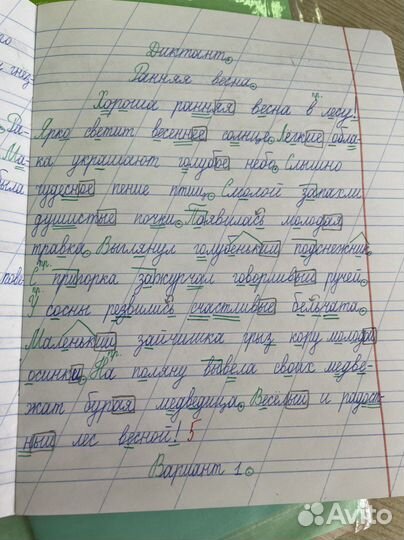 Диктант.
Ранняя весна.
Хороша ранняя весна в лесу!
Ярко светит весеннее солнце. Легкие обла-
ка украшают голубое небо. Слышно
чудесное пение птиц. Смолой запахли
душистые почки. Появилась молодая
травка. Выглянул голубенький подснежник.
С пригорка зажурчал говорливый ручей.
У сосны резвились счастливые бельчата.
Маленький зайчишка грыз кору молодой
осинки. На поляну вывела своих медве-
жат бурая медведица. Веселый и радост-
ный лес весной! 5
Вариант 1.
Avito